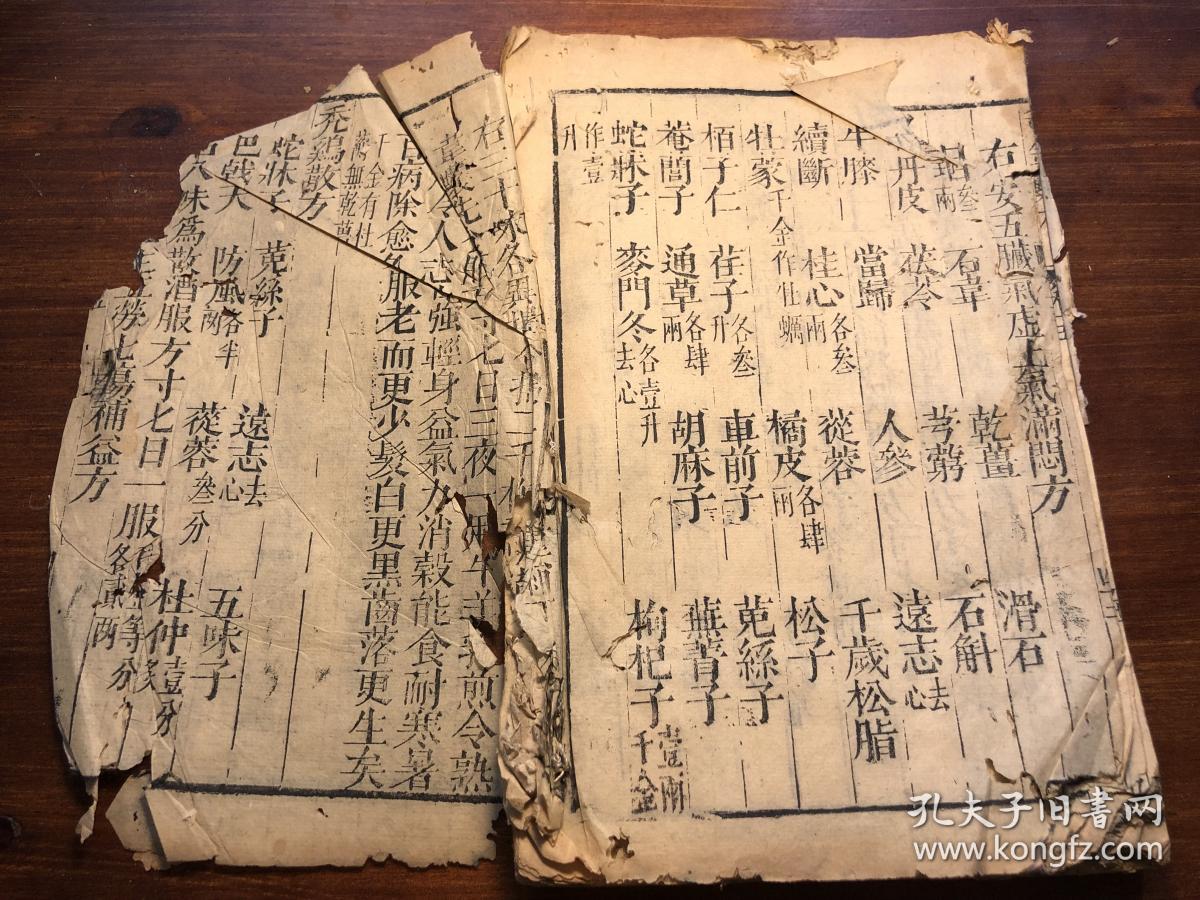 右安五臟氣虛上氣滿悶方
乾薑 滑石
各叁兩 石韋 芎藭 石斛
丹皮 茯苓 人參 遠志去心
牛膝 當歸 蓯蓉 千歲松脂
續斷 桂心各叁兩 橘皮各肆兩 松子
牡蒙千金作牡蠣
栢子仁 荏子各叁升 車前子 菟絲子
菴䕡子 通草各肆兩 胡麻子 蕪菁子
蛇牀子 麥門冬各壹升去心 枸杞子壹兩千金
作壹升
右二十味各
寸七日三夜一 煎令熟
令人志強輕身益氣力消穀能食耐寒暑
百病除愈久服老而更少髮白更黑齒落更生矣
千金有杜 無乾
禿鷄散方
蛇牀子 菟絲子 遠志去心 五味子
巴戟天 防風各半兩 蓯蓉叁分 杜仲壹分
六味為散酒服方寸七日一服
七傷補益方 各貳兩 等分
孔夫子旧书网
www.kongfz.com